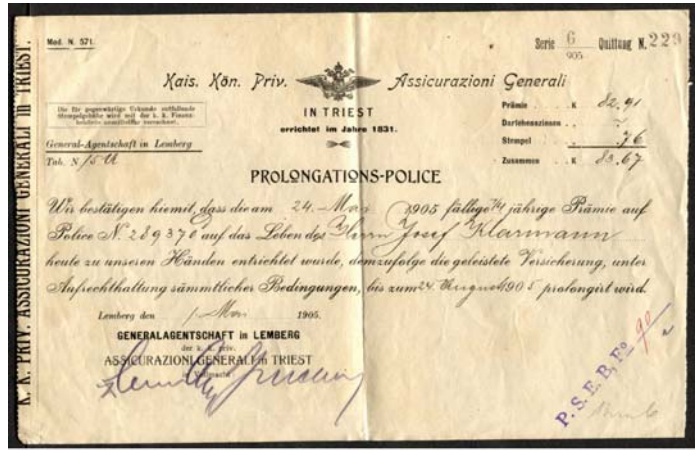 Mod. N. 571.
Serie G Quittung N. 229
905
Kais. Kön. Priv. Assicurazioni Generali
IN TRIEST
errichtet im Jahre 1831.
Die für gegenwärtige Urkunde entfallende
Stempelgebühr wird mit der k. k. Finanz-
behörde unmittelbar verrechnet.
General-Agentschaft in Lemberg
Tab. N.
Prämie . . . . K 82.91
Darlehenszinsen . .
Stempel . . . . 76
Zusammen . . K 83.67
PROLONGATIONS-POLICE
Wir bestätigen hiemit, dass die am 24. Mai 1905 fällige 1/4 jährige Prämie auf
Police N. 289370 auf das Leben des Herrn Josef Klarmann
heute zu unseren Händen entrichtet wurde, demzufolge die geleistete Versicherung, unter
Aufrechthaltung sämmtlicher Bedingungen, bis zum 24. August 1905 prolongirt wird.
Lemberg den 1 Mai 1905.
GENERALAGENTSCHAFT in LEMBERG
der k. k. priv.
ASSICURAZIONI GENERALI in TRIEST
K. K. PRIV. ASSICURAZIONI GENERALI in TRIEST.
P. S. E. B. Fo 90